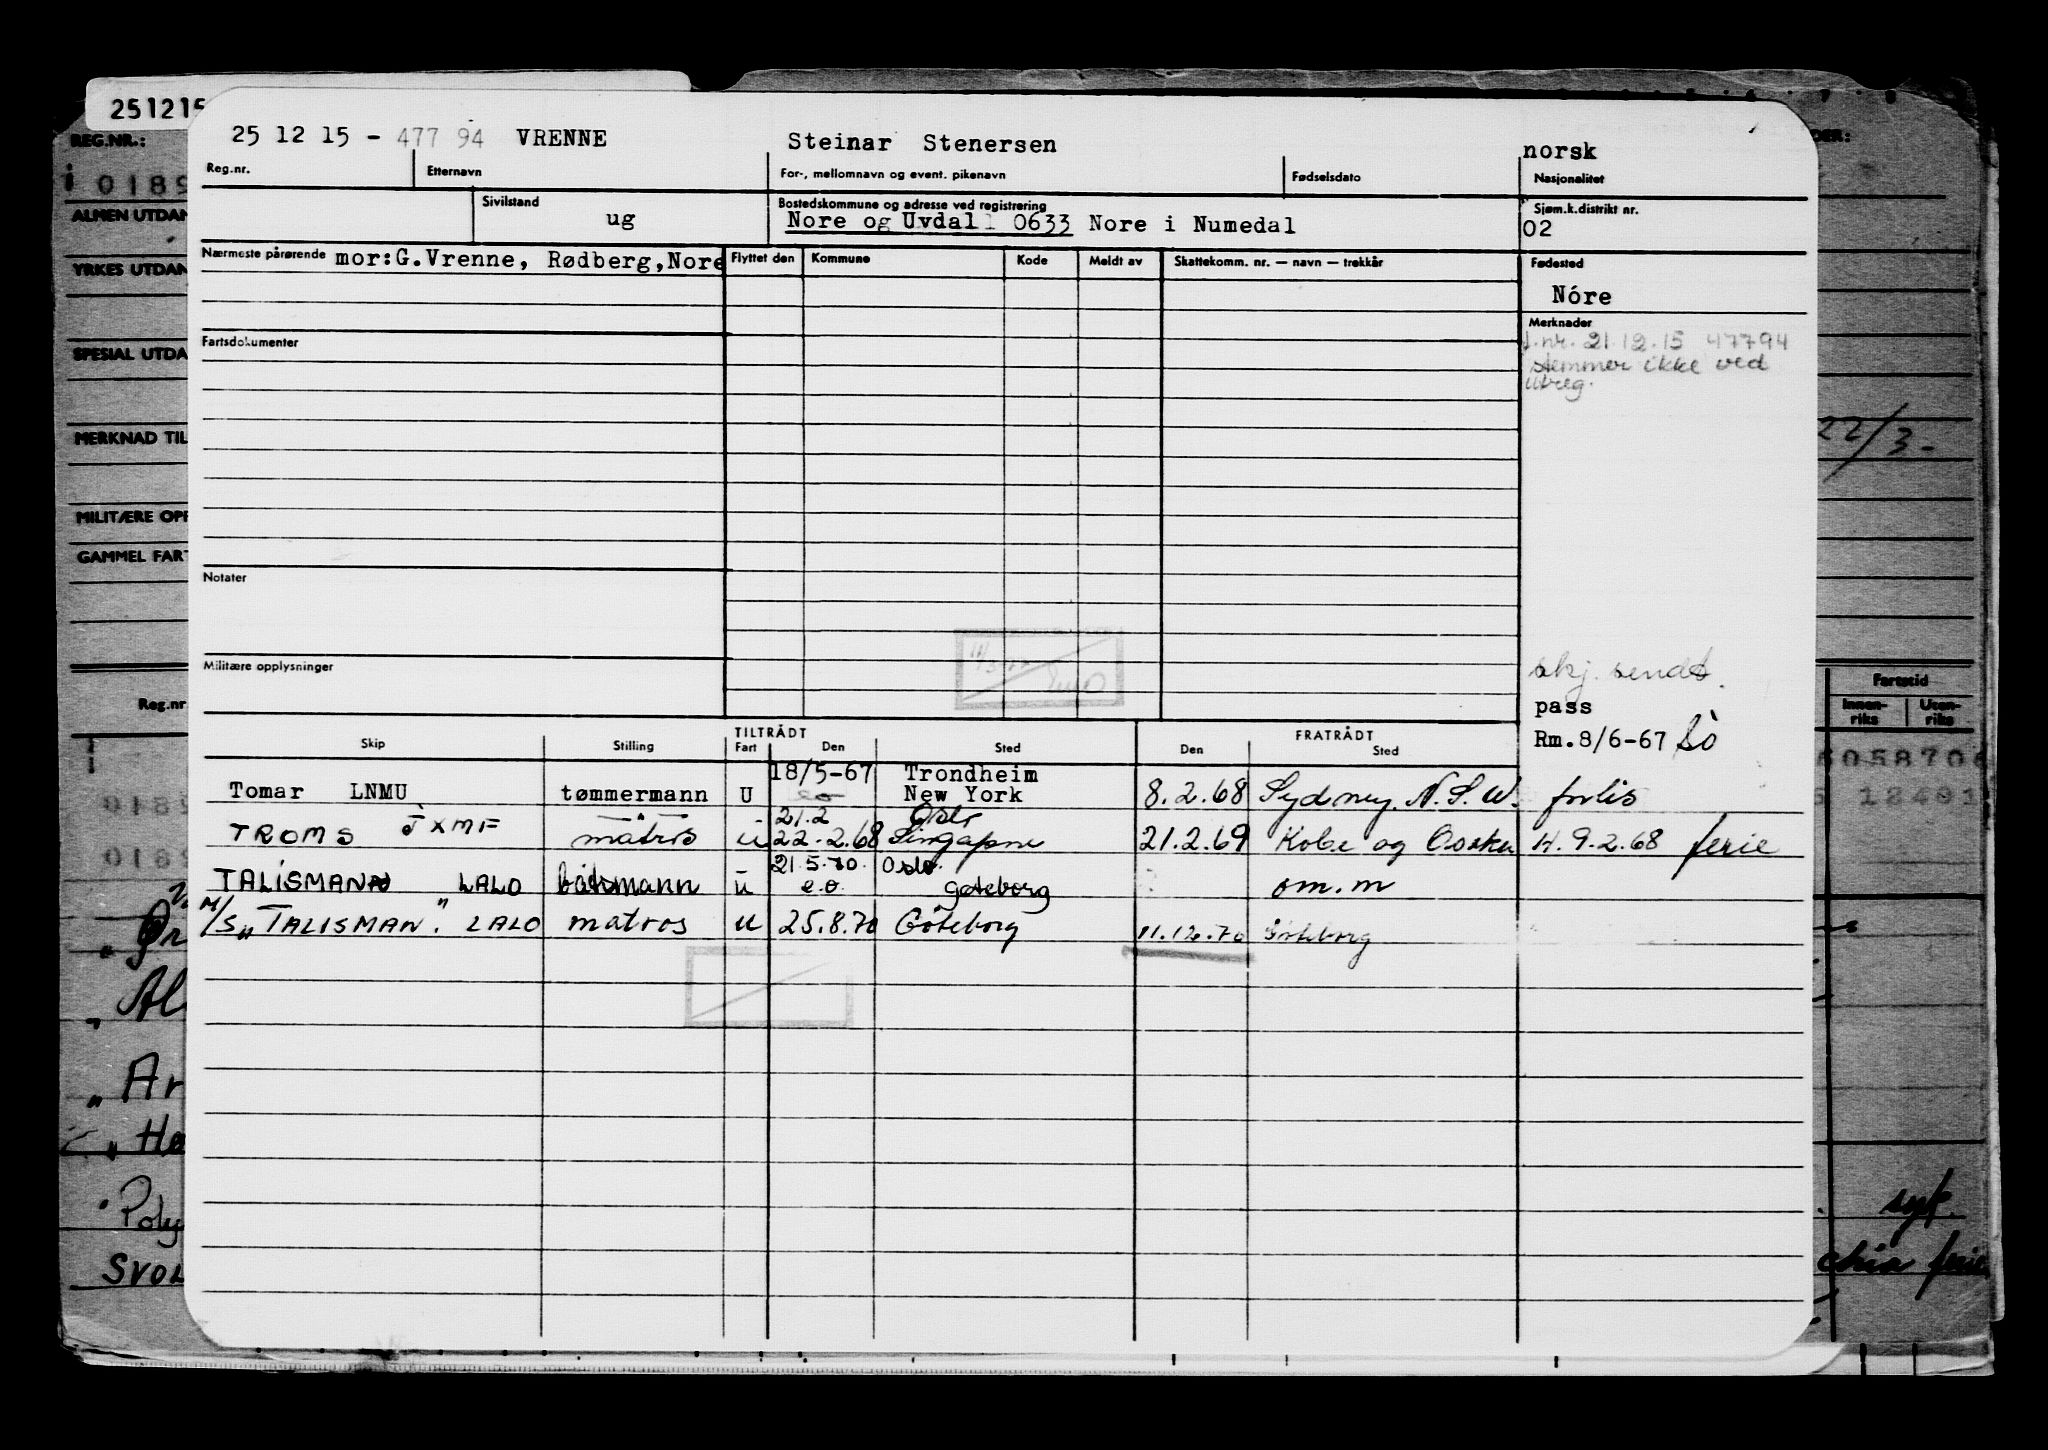 251215
25 12 15 - 477 94 VRENNE Steinar Stenersen norsk
Reg.nr. Etternavn For-, mellomnavn og event. pikenavn Fødselsdato Nasjonalitet
Sivilstand Bostedskommune og adresse ved registrering Sjøm.k.distrikt nr.
ug Nore og Uvdal 0633 Nore i Numedal 02
Nærmeste pårørende mor:G.Vrenne, Rødberg,Nore Flyttet den Kommune Kode Meldt av Skattekomm. nr. — navn — trekkår Fødested
Nóre
Merknader
f.nr. 21.12.15 47794
stemmer ikke ved
utreg.
Fartsdokumenter
Notater
Militære opplysninger
skj. sendt.
pass
Rm.8/6-67 Sò
TILTRÅDT FRATRÅDT
Skip Stilling Fart Den Sted Den Sted
18/5-67 Trondheim
Tomar LNMU tømmermann U New York 8.2.68 Sydney. N.S.W. forlis
21.2 Oslo
TROMS JXMF matros u 22.2.68 Singapore 21.2.69 Kobe og Osaka H. 9.2.68 ferie
21.5.70 Oslo
TALISMAN LALO båtsmann u e.o. Gøteborg om.m
M/S „TALISMAN". LALO matros u 25.8.70 Göteborg 11.12.70 Göteborg
REG.NR.:
0189
ALMEN UTDAN
YRKES UTDAN
SPESIAL UTDA
MERKNAD TIL
MILITÆRE OPP
GAMMEL FART
Reg.nr
0189
0189
Al
Ar
Ha
Poly
SVOL
DER:
22/3-
Fartstid
Innen-riks Uten-riks
605870
18401
syk.
chia ferie